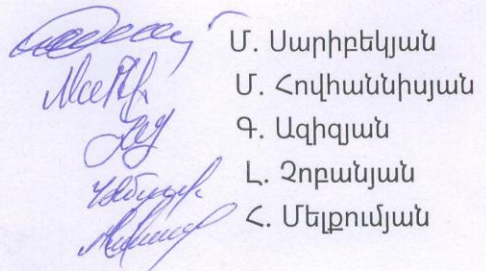 Մ. Սարիբեկյան
Մ. Հովհաննիսյան
Գ. Ազիզյան
Լ. Չոբանյան
Հ. Մելքումյան